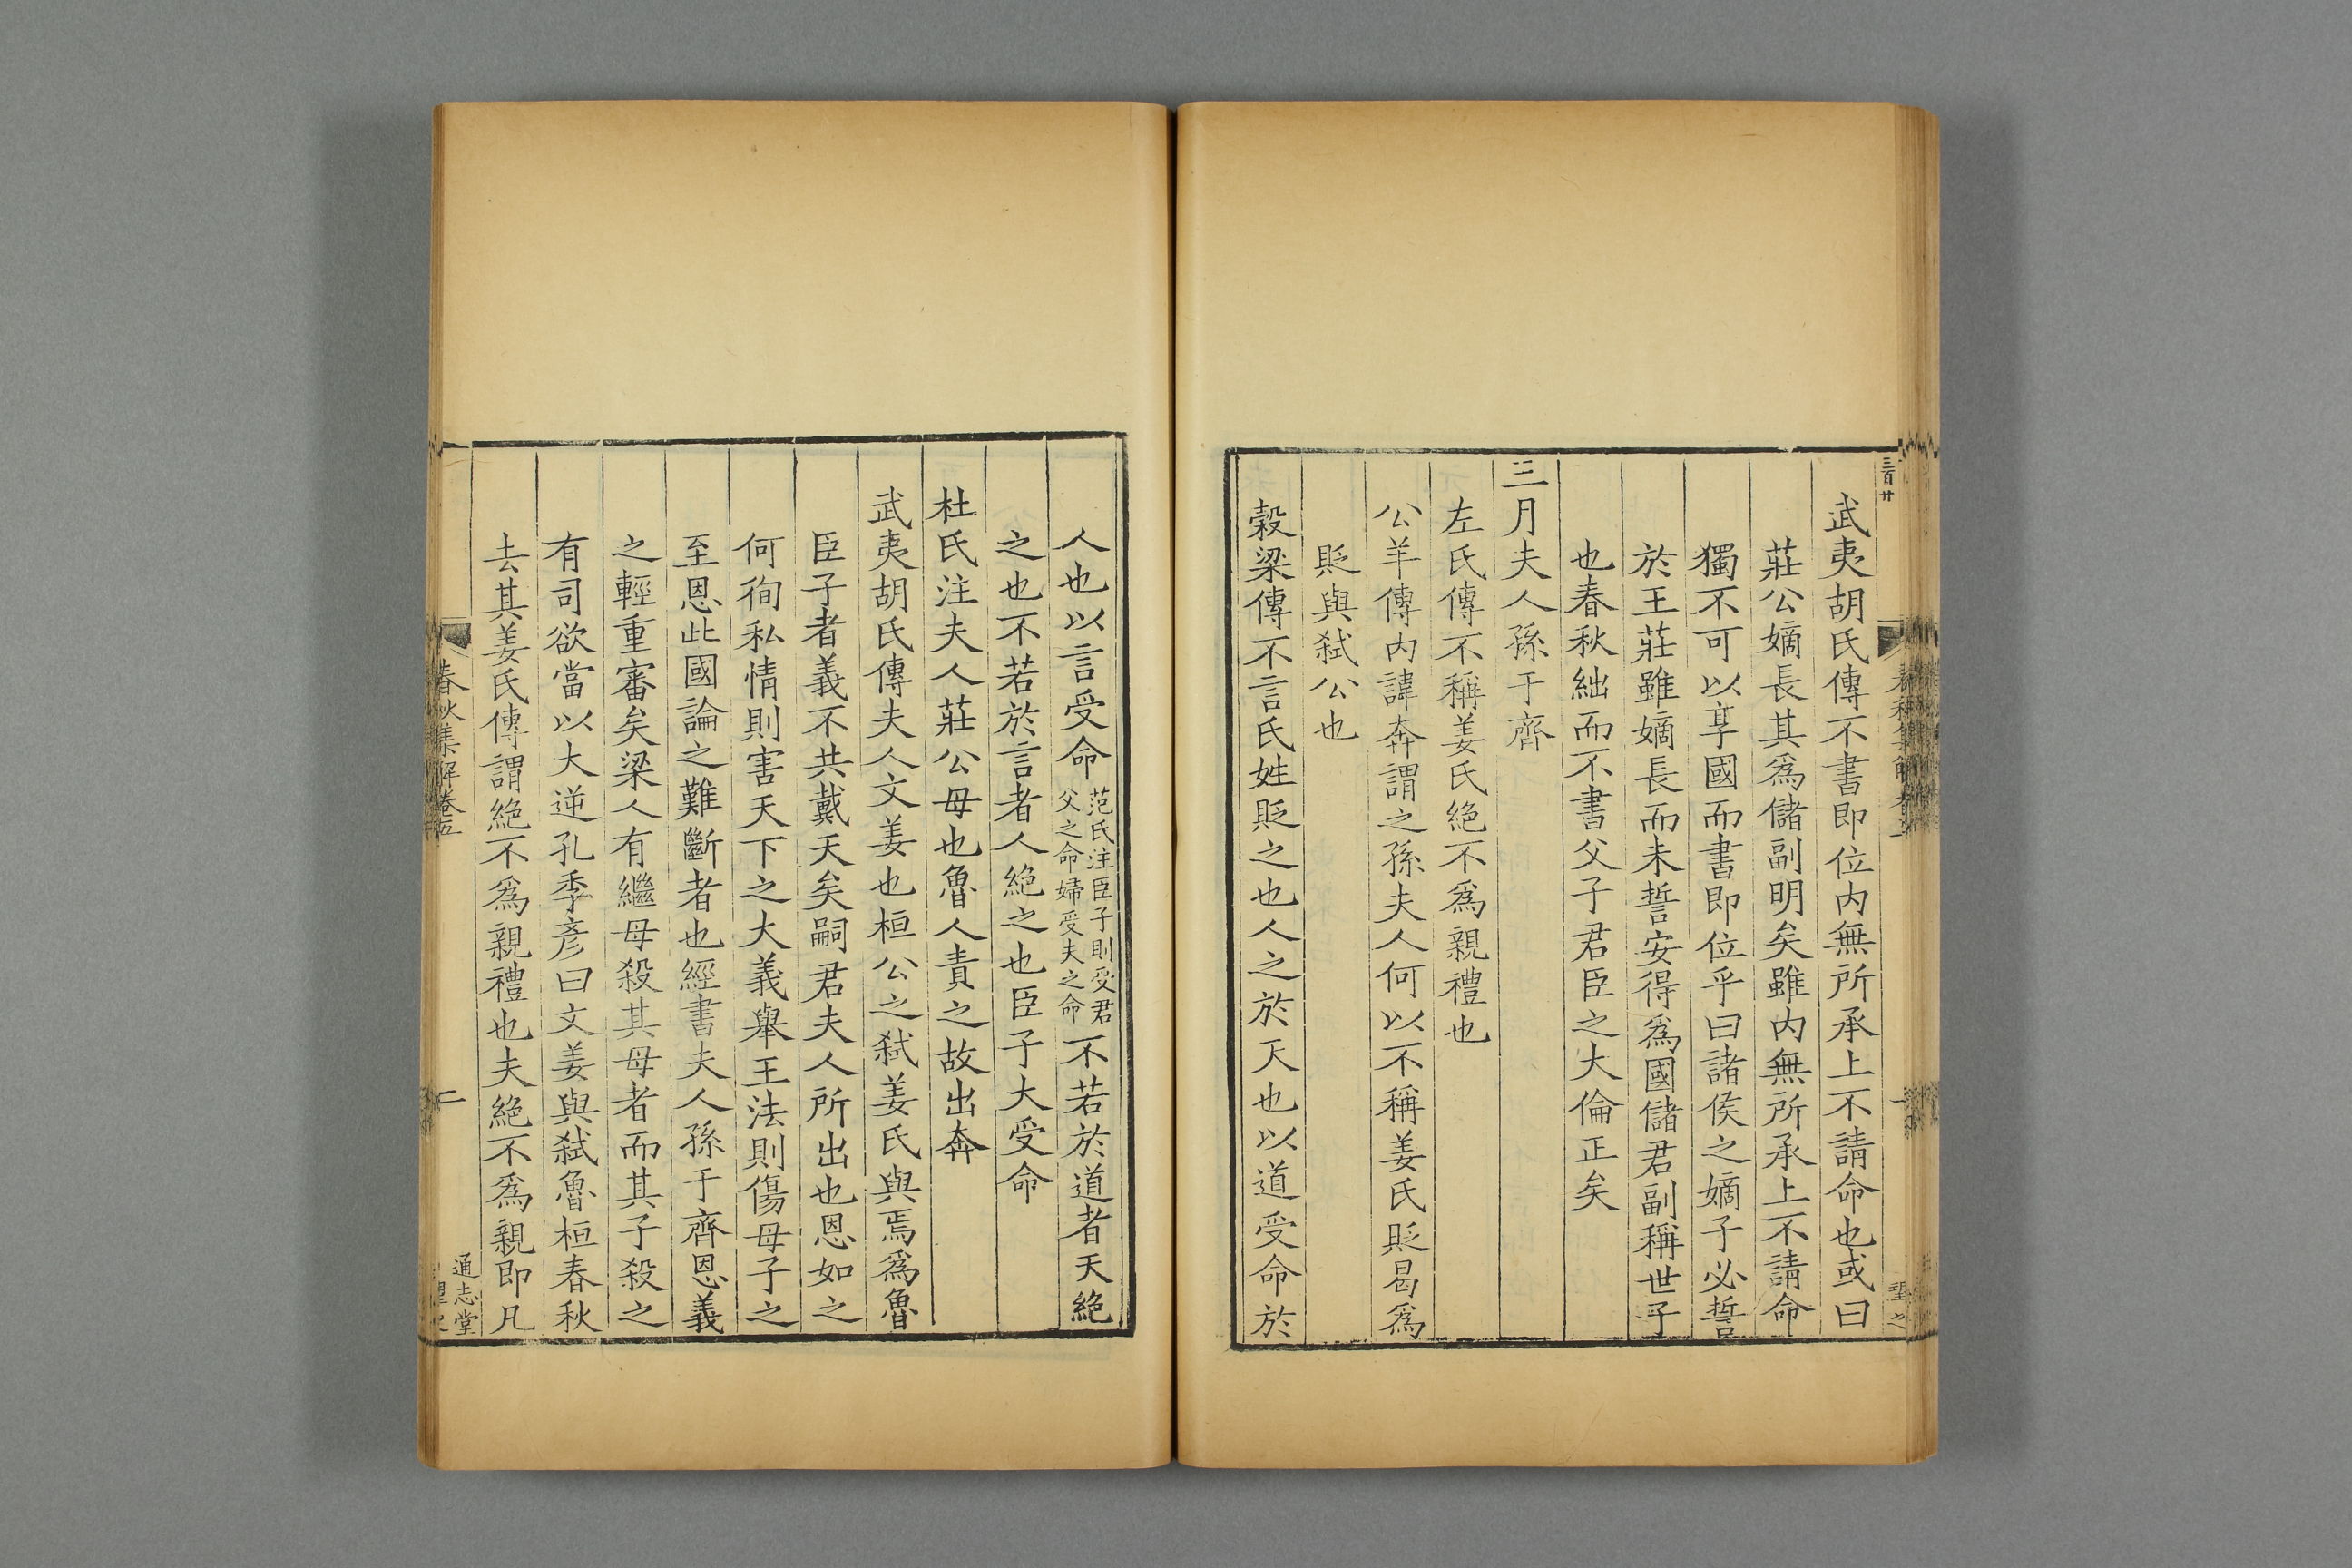 三百廿
武夷胡氏傳不書即位内無所承上不請命也或曰
莊公嫡長其爲儲副明矣雖内無所承上不請命
獨不可以享國而書即位乎曰諸侯之嫡子必誓
於王莊雖嫡長而未誓安得爲國儲君副稱世子
也春秋絀而不書父子君臣之大倫正矣
三月夫人孫于齊
左氏傳不稱姜氏絶不爲親禮也
公羊傳内諱奔謂之孫夫人何以不稱姜氏貶曷爲
貶與弑公也
穀梁傳不言氏姓貶之也人之於天也以道受命於
人也以言受命范氏注臣子則受君
父之命婦受夫之命
不若於道者天絶
之也不若於言者人絶之也臣子大受命
杜氏注夫人莊公母也魯人責之故出奔
武夷胡氏傳夫人文姜也桓公之弑姜氏與焉爲魯
臣子者義不共戴天矣嗣君夫人所出也恩如之
何徇私情則害天下之大義舉王法則傷母子之
至恩此國論之難斷者也經書夫人孫于齊恩義
之輕重審矣梁人有繼母殺其母者而其子殺之
有司欲當以大逆孔季彦曰文姜與弑魯桓春秋
去其姜氏傳謂絶不爲親禮也夫絶不爲親即凡
春秋集解卷五
二
通志堂